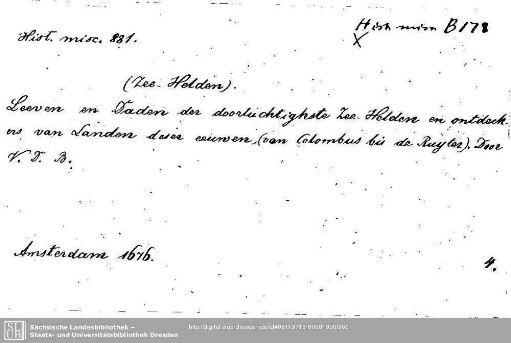 Hist. misc. B 178
Hist. misc. 231.
(Zee-Helden).
Leeven en Daden der doorluchtighste Zee-Helden en ontdeck-
ers van Landen deser eeuwen, (van Colombus bis de Ruyter). Door
V. D. B.
Amsterdam 1676.
4.
Sächsische Landesbibliothek –
Staats- und Universitätsbibliothek Dresden